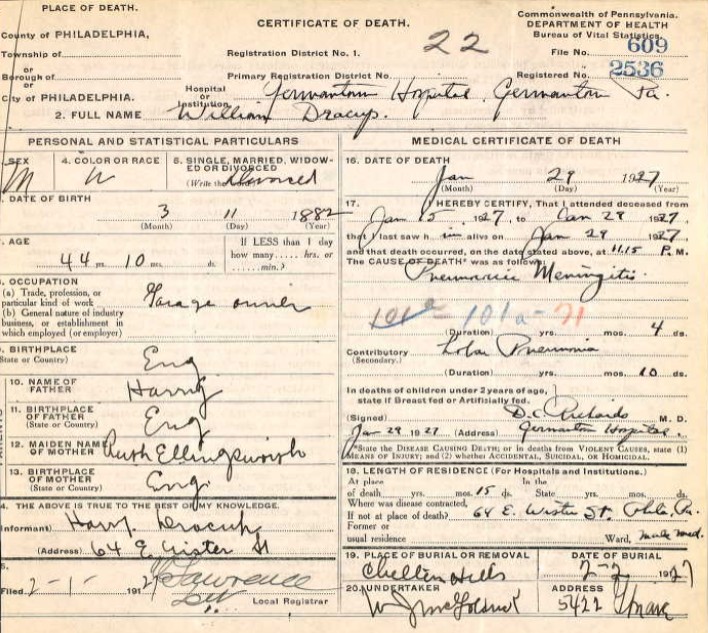 PLACE OF DEATH.
County of PHILADELPHIA,
Township of
or
Borough of
or
City of PHILADELPHIA.
CERTIFICATE OF DEATH.
Registration District No. 1.
22
Primary Registration District No.
Hospital or Institution Germantown Hospital, Germantown Pa.
Commonwealth of Pennsylvania.
DEPARTMENT OF HEALTH
Bureau of Vital Statistics.
File No. 609
Registered No. 2536
2. FULL NAME William Dracup.
PERSONAL AND STATISTICAL PARTICULARS
SEX M
4. COLOR OR RACE W
5. SINGLE, MARRIED, WIDOWED OR DIVORCED
(Write the word) Divorced
DATE OF BIRTH
3 11 1882
(Month) (Day) (Year)
AGE
44 yrs. 10 mos. ds.
If LESS than 1 day
how many...... hrs. or
...... min.?
OCCUPATION
(a) Trade, profession, or
particular kind of work
(b) General nature of industry
business, or establishment in
which employed (or employer)
Garage owner
BIRTHPLACE
(State or Country) Eng
10. NAME OF FATHER Harry
11. BIRTHPLACE OF FATHER
(State or Country) Eng
12. MAIDEN NAME OF MOTHER Ruth Ellingsworth
13. BIRTHPLACE OF MOTHER
(State or Country) Eng
4. THE ABOVE IS TRUE TO THE BEST OF MY KNOWLEDGE.
Informant) Harry Dracup
(Address) 64 E Wister St
Filed 2-1- 1927 Lawrence
Local Registrar
MEDICAL CERTIFICATE OF DEATH
16. DATE OF DEATH
Jan 29 1927
(Month) (Day) (Year)
17. I HEREBY CERTIFY, That I attended deceased from
Jan 15, 1927, to Jan 29 1927,
that I last saw him alive on Jan 29 1927
and that death occurred, on the date stated above, at 11.15 P. M.
The CAUSE OF DEATH* was as follows:
Pneumococcic Meningitis
101a-71
(Duration) yrs. mos. 4 ds.
Contributory Lobar Pneumonia
(Secondary.)
(Duration) yrs. mos. 10 ds.
In deaths of children under 2 years of age,
state if Breast fed or Artificially fed.
(Signed) D.C. Richards M. D.
Jan 29 1927 (Address) Germantown Hospital.
*State the DISEASE CAUSING DEATH; or in deaths from VIOLENT CAUSES, state (1)
MEANS OF INJURY; and (2) whether ACCIDENTAL, SUICIDAL, OR HOMICIDAL.
18. LENGTH OF RESIDENCE (For Hospitals and Institutions.)
At place In the
of death yrs. mos. 15 ds. State yrs. mos. ds.
Where was disease contracted,
If not at place of death? 64 E. Wister St. Phila, Pa.
Former or
usual residence Ward,
19. PLACE OF BURIAL OR REMOVAL
Chelten Hills
DATE OF BURIAL
2-2 1927
20. UNDERTAKER
ADDRESS
5422